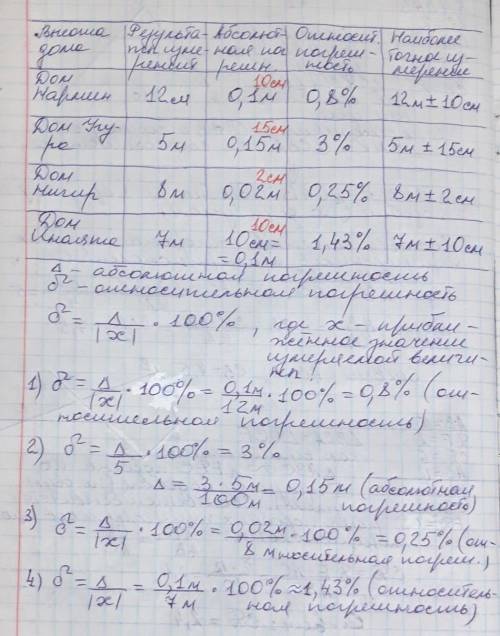 Высота дома | Результаты измерений | Абсолютная погрешн. | Относит. погреш-ность | Наиболее точное измерение
10см
Дом Нармин | 12м | 0,1м | 0,8% | 12м ± 10см
15см
Дом Угура | 5м | 0,15м | 3% | 5м ± 15см
2см
Дом Нигяр | 8м | 0,02м | 0,25% | 8м ± 2см
10см
Дом | 7м | 10см = = 0,1м | 1,43% | 7м ± 10см
Δ - абсолютная погрешность
δ - относительная погрешность
δ = Δ/|x| · 100%, где x - прибли-
женное значение
измеряемой величи-
ны.
1) δ = Δ/|x| · 100% = 0,1м/12м · 100% = 0,8% (от-
носительная погрешность)
2) δ = Δ/5 · 100% = 3%
Δ = 3 · 5м/100м = 0,15м (абсолютная
погрешность)
3) δ = Δ/|x| · 100% = 0,02м/8м · 100% = 0,25% (от-
носительная погреш.)
4) δ = Δ/|x| = 0,1м/7м · 100% ≈ 1,43% (относитель-
ная погрешность)